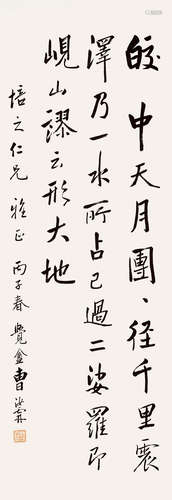 皎中天月團、径千里震
澤乃一水所占已過二娑羅即
峴山謬云形大地
培之仁兄 雅正 丙子春 覺盦曹汝霖